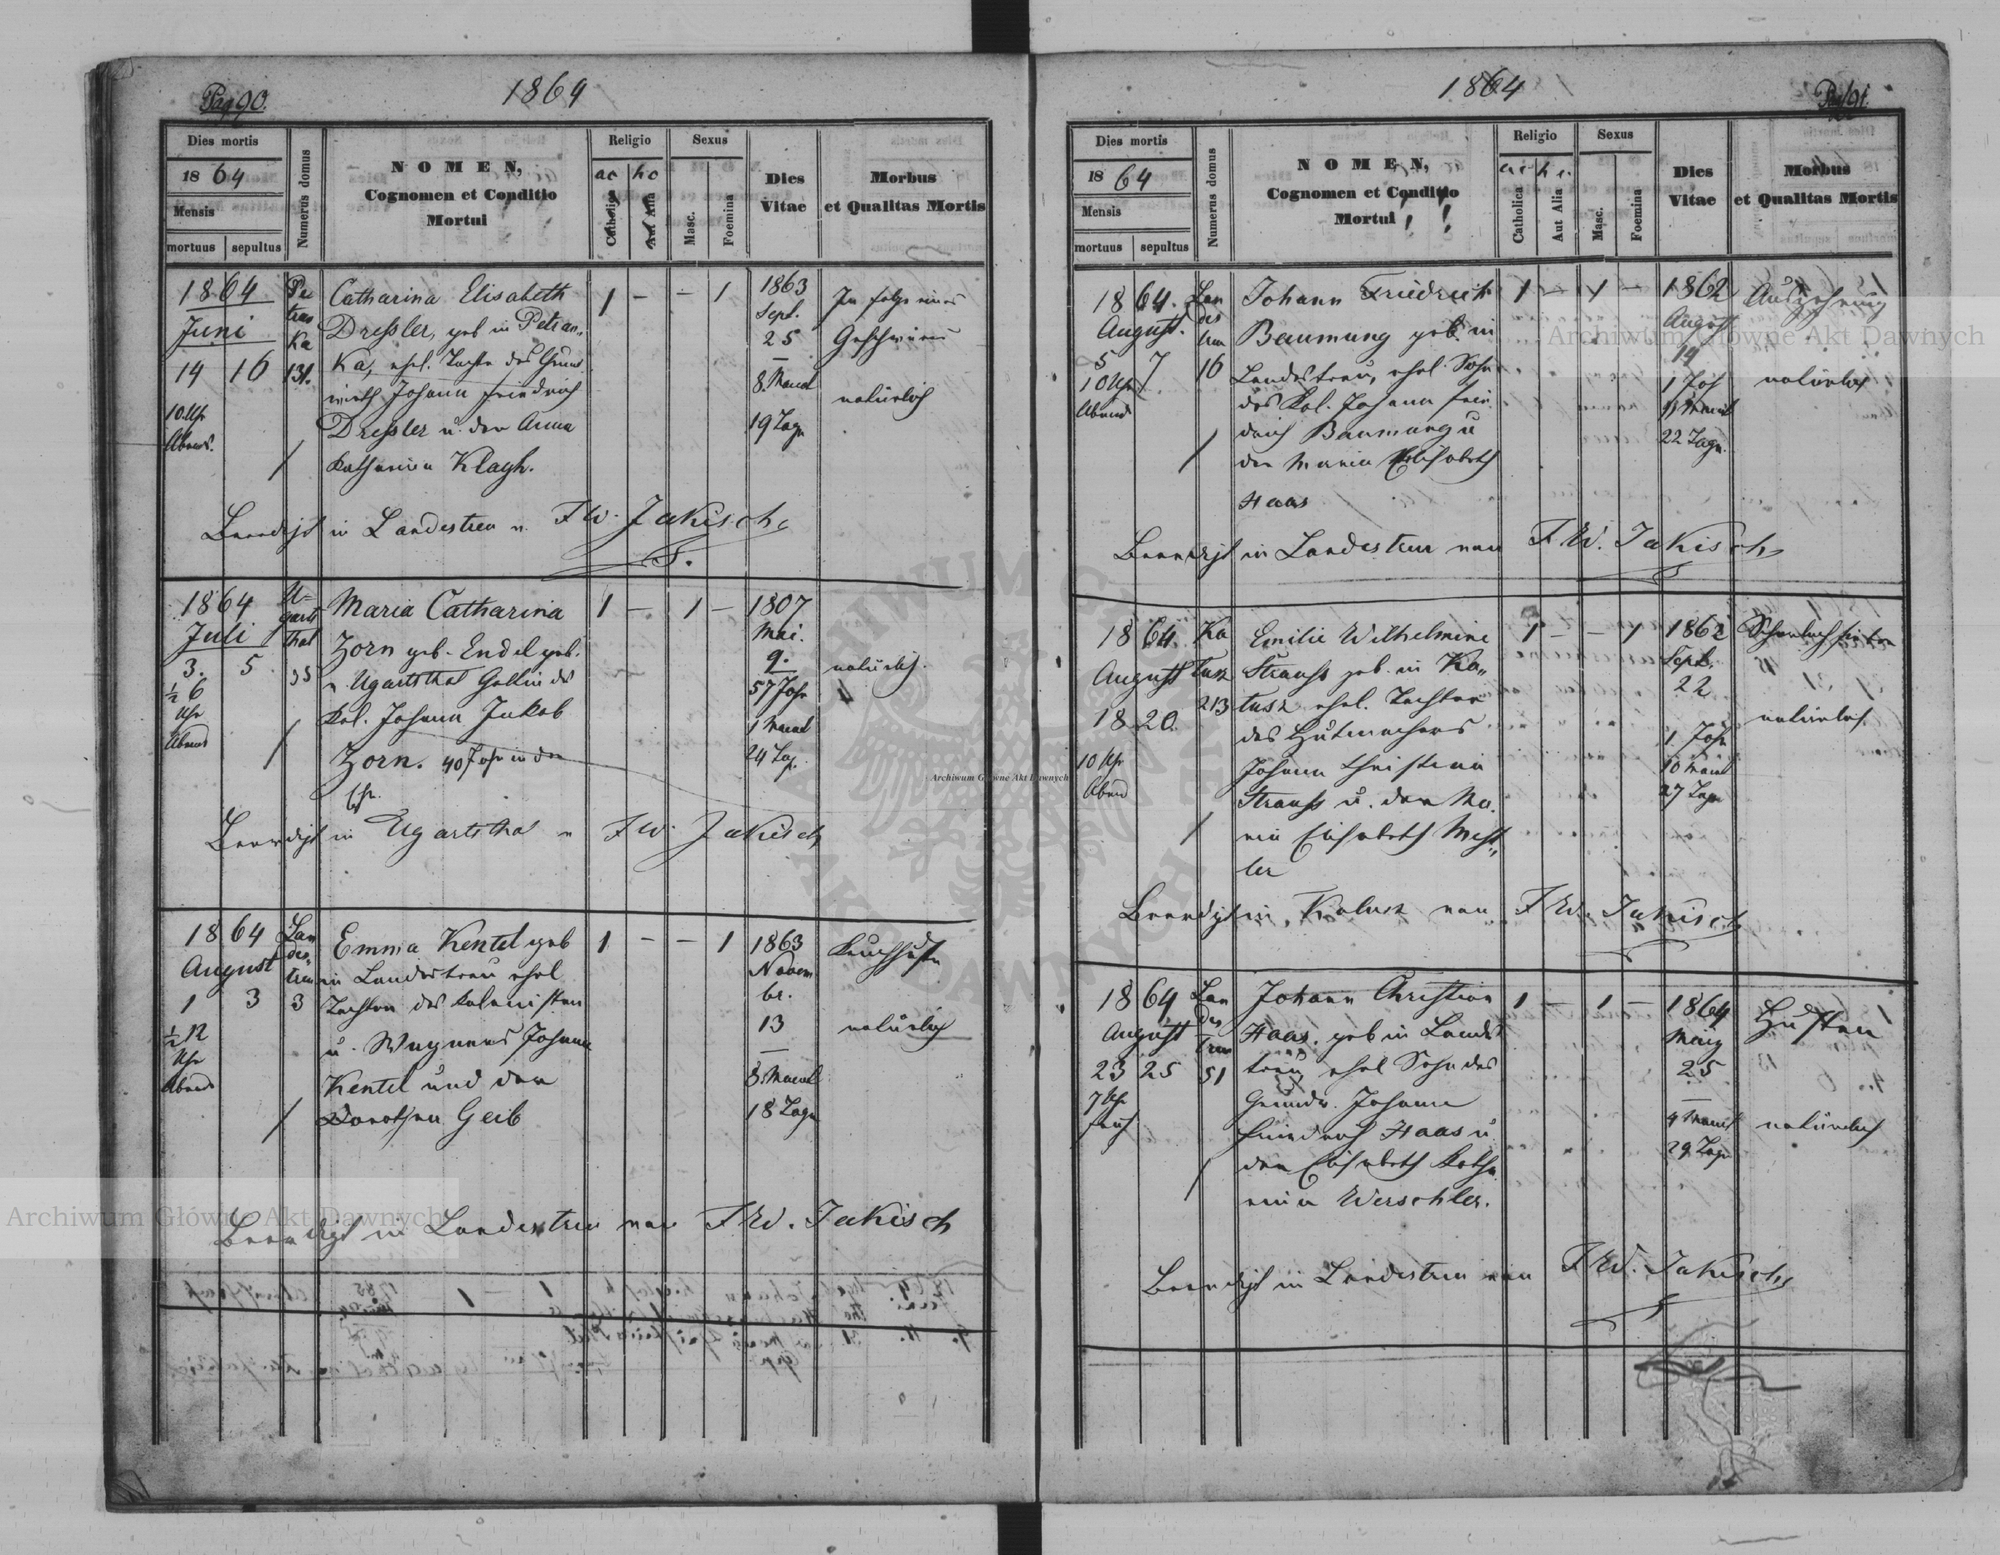 Pag 90.
1864
Dies mortis
1864
Mensis
mortuus
sepultus
Numerus domus
NOMEN,
Cognomen et Conditio
Mortui
Religio
ac
hc
Catholica
Aut Alia
Sexus
Masc.
Foemina
Dies
Vitae
Morbus
et Qualitas Mortis
1864
Juni
14 16
10 Uhr
Abends.
Pe
tran
Ka
131.
Catharina Elisabeth
Dressler, geb in Petran„
Ka, ehel. Tochter des Grund
wirth Johann Friedrich
Dressler u. der Anna
Katharina Klagh.
1 - - 1
1863
Sept.
25
8 Monat
19 Tage
In folge eines
Geschwüres
natürlich
Beerdigt in Landestreu v. Fr W. Jakisch
1864
Juli
3. 5
½ 6
Uhr
Abends
U=
garts
thal
35
Maria Catharina
Zorn geb. Endel geb.
v. Ugartsthal Gattin des
Kol. Johann Jakob
Zorn. 40 Jahr in der
Ehe.
1 - 1 -
1807
Mai.
9.
57 Jahr
1 Monat
24 Tag.
natürlich.
Beerdigt in Ugartsthal v Fr W. Jakisch
1864
August
1 3
½ 12
Uhr
Abends
Lan
des„
treu
3
Emma Kentel geb
in Landestreu ehel
Tochter des Kolonisten
u. Wagners Johann
Kentel und der
Dorothea Geib
1 - - 1
1863
Novem
br.
13
8 Monat
18 Tage
Keuchhusten
natürlich
Beerdigt in Landestreu von Fr W. Jakisch
1864
Pag 91.
Dies mortis
1864
Mensis
mortuus
sepultus
Numerus domus
NOMEN,
Cognomen et Conditio
Mortui
Religio
ac
hc
Catholica
Aut Alia
Sexus
Masc.
Foemina
Dies
Vitae
Morbus
et Qualitas Mortis
1864.
August.
5 7
10 Uhr
Abends
Lan
des
treu
16
Johann Friedrich
Baumung geb. in
Landestreu, ehel. Sohn
des Kol. Johann Frie
drich Baumung u
der Maria Elisabeth
Haas
1 - 1 -
1862
August
14
1 Jahr
11 Monat
22 Tage.
Auszehrung
natürlich
Beerdigt in Landestreu von Fr W. Jakisch
1864.
August
18 20.
10 Uhr
Abend
Ka
lusz
213
Emilie Wilhelmine
Strauss geb. in Ka„
lusz ehel. Tochter
des Hutmachers
Johann Christian
Strauss u. der Ma.
ria Elisabeth Mess„
ler
1 - - 1
1862
Sept.
22
1 Jahr
10 Monat
27 Tage
Scharlachfieber
natürlich
Beerdigt in Kalusz von Fr W. Jakisch
1864
August
23 25
7 Uhr
früh
Lan
des
treu
51
Johann Christian
Haas. geb in Landes
treu, ehel Sohn des
Grundw. Johann
Friedrich Haas u.
der Elisabeth Katha
rina Werschler.
1 - 1 -
1864
März
25
4 Monat
29 Tage
Husten
natürlich
Beerdigt in Landestreu von Fr W. Jakisch
Archiwum Główne Akt Dawnych
Archiwum Główne Akt Dawnych
Archiwum Główne Akt Dawnych
ARCHIWUM GŁÓWNE AKT DAWNYCH